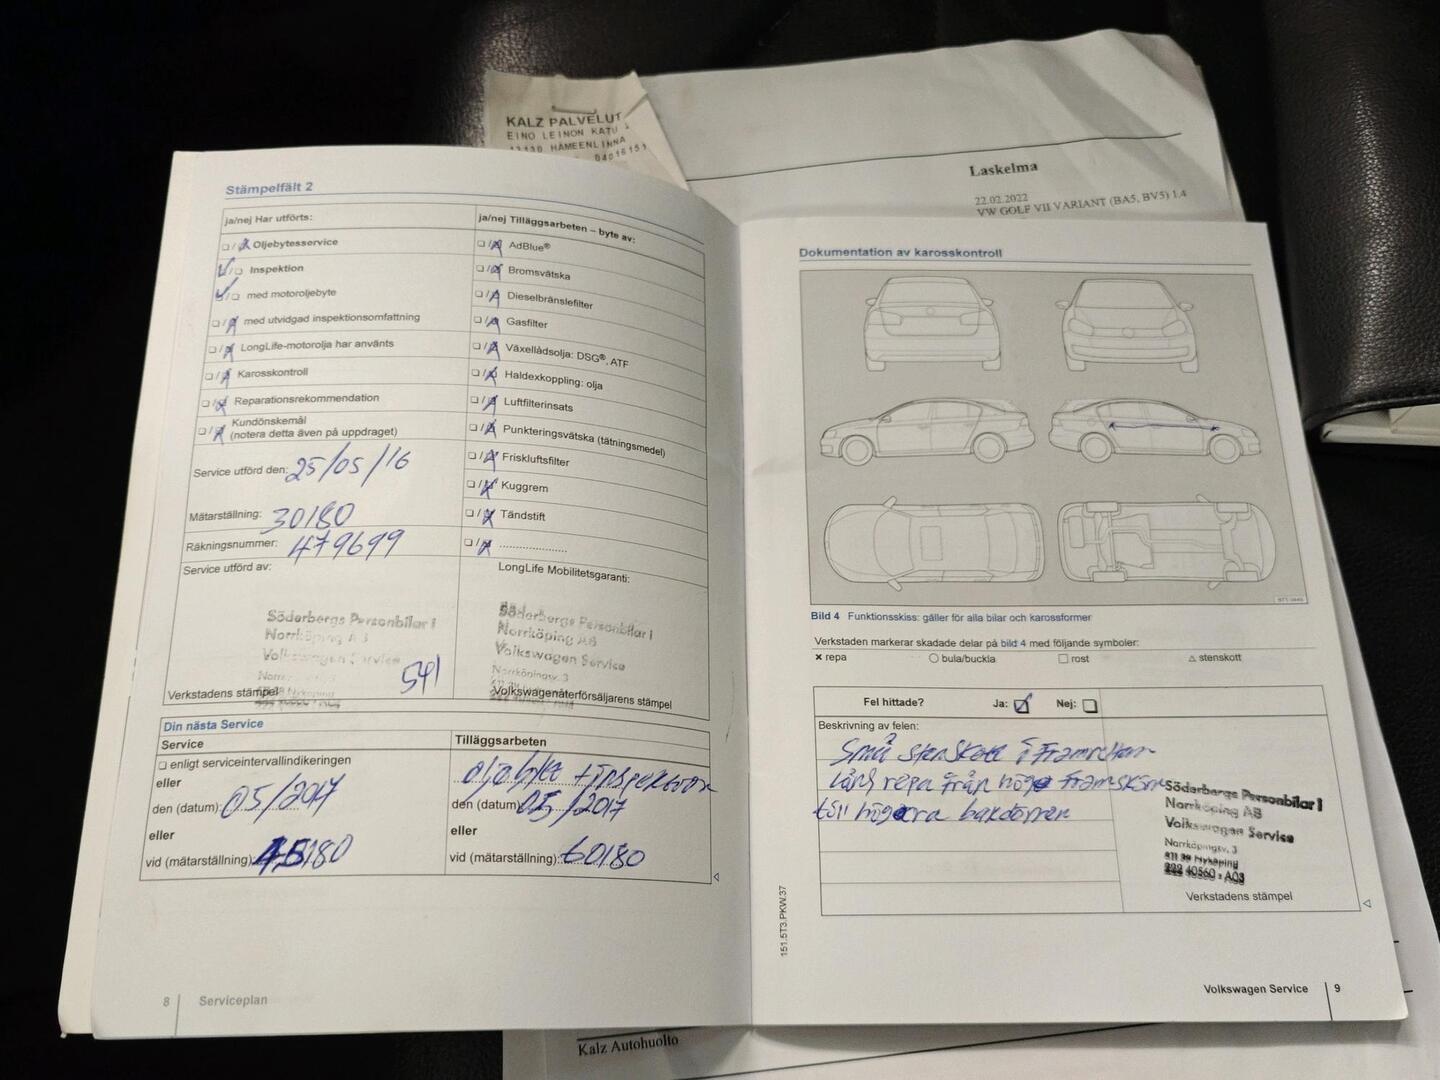 KALZ PALVELUT
EINO LEINON KATU
13130 HÄMEENLINNA
04016151
Laskelma
22.02.2022
VW GOLF VII VARIANT (BA5, BV5) 1.4
Stämpelfält 2
ja/nej Har utförts:
Oljebytesservice
Inspektion
med motoroljebyte
med utvidgad inspektionsomfattning
LongLife-motorolja har använts
Karosskontroll
Reparationsrekommendation
Kundönskemål
(notera detta även på uppdraget)
Service utförd den: 25/05/16
Mätarställning: 30180
Räkningsnummer: 479699
Service utförd av:
Söderbergs Personbilar i
Norrköping AB
Volkswagen Service
541
Verkstadens stämpel
ja/nej Tilläggsarbeten – byte av:
AdBlue®
Bromsvätska
Dieselbränslefilter
Gasfilter
Växellådsolja: DSG®, ATF
Haldexkoppling: olja
Luftfilterinsats
Punkteringsvätska (tätningsmedel)
Friskluftsfilter
Kuggrem
Tändstift
LongLife Mobilitetsgaranti:
Söderbergs Personbilar i
Norrköping AB
Volkswagen Service
Norrköpingsv. 3
Volkswagenåterförsäljarens stämpel
Din nästa Service
Service
enligt serviceintervallindikeringen
eller
den (datum): 05/2017
eller
vid (mätarställning): 45180
Tilläggsarbeten
oljebyte + inspektion
den (datum) 05/2017
eller
vid (mätarställning): 60180
8 Serviceplan
Dokumentation av karosskontroll
Bild 4 Funktionsskiss: gäller för alla bilar och karossformer
Verkstaden markerar skadade delar på bild 4 med följande symboler:
repa
bula/buckla
rost
stenskott
Fel hittade? Ja: Nej:
Beskrivning av felen:
Små stenskott i Framrutan
lång repa från höge framskärm
till högra bakdörren
Söderbergs Personbilar i
Norrköping AB
Volkswagen Service
Norrköpingsv. 3
611 39 Nyköping
222 40560 - A03
Verkstadens stämpel
151.5T3.PKW.37
Volkswagen Service 9
Kalz Autohuolto